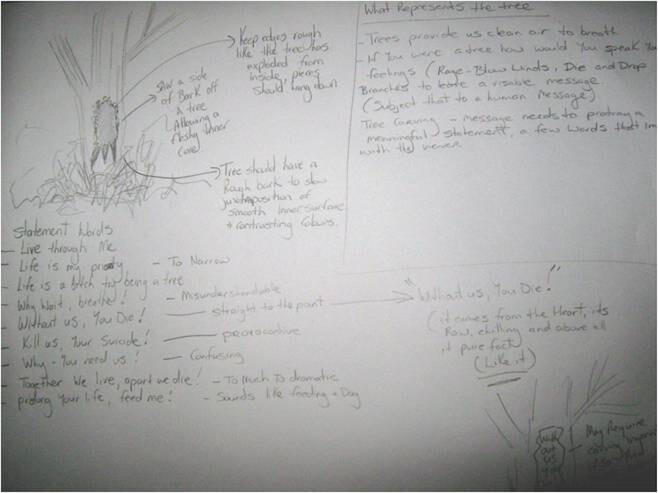 Keep edges rough
like the tree has
exploded from
inside, pieces
should hang down
Saw a side
of Bark off
A tree
Allowing a
fleshy Inner
core
Tree should have a
Rough bark to show
juxtaposition of
smooth inner surface
+ contrasting Colours.
What Represents the tree
- Trees provide us clean air to breath
- If you were a tree how would You speak You
feelings (Rage-Blow Winds, Die and Drop
Branches to leave a visable message
(Subject that to a human Message)
Tree Carving - message needs to protray a
meaningful statement, a few Words that
with the viewer
Statement Words
- Live through Me
- Life is my - To Narrow
- Life is a bitch try being a tree
- Why Wait, breathe! - Misunderstandable
- Without us, You Die! - straight to the point
- Kill us, Your Suicide! - provocative
- Why - You need us! - Confusing
- Together We live, apart we die! - To Much To dramatic
- prolong Your life, feed me! - Sounds like feeding a Dog
"Without us, You Die!"
(it comes from the Heart, its
Raw, chilling and above all
it pure fact)
(Like it)
With
out
us
You
May Require
carving